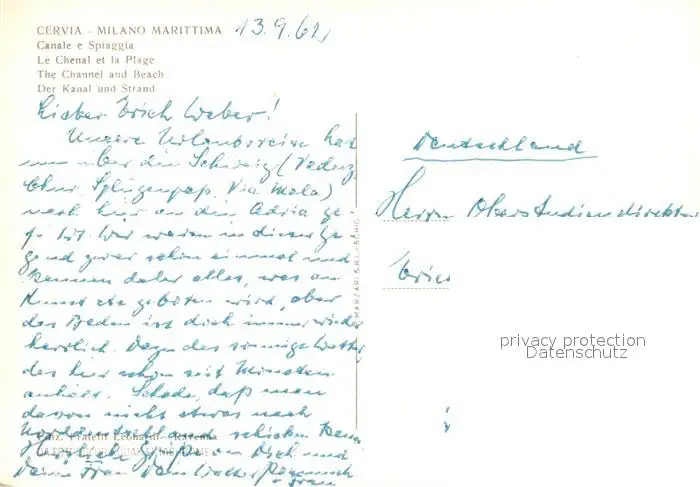 CERVIA - MILANO MARITTIMA 13.9.61
Canale e Spiaggia
Le Chenal et la Plage
The Channel and Beach
Der Kanal und Strand
Lieber Erich Weber!
Unsere Urlaubsreise hat
nun über die Schweiz (Vaduz,
Chur, Splügenpaß, Via Mala)
nach hier an die Adria ge-
führt. Wir waren in dieser Ge-
gend zwar schon einmal und
kennen daher alles, was an
Kunst etc geboten wird, aber
das Baden ist doch immer wieder
herrlich. Dazu das sonnige Wetter,
das hier schon seit Monaten
anhält. Schade, daß man
davon nicht etwas nach
Norddeutschland schicken kann
Herzliche Grüße an Dich und
Deine Frau Dein Walter
+ Frau
MARZARI S.R.L. - SCHIO
Deutschland
Herrn Oberstudiendirektor
Erich
privacy protection
Datenschutz